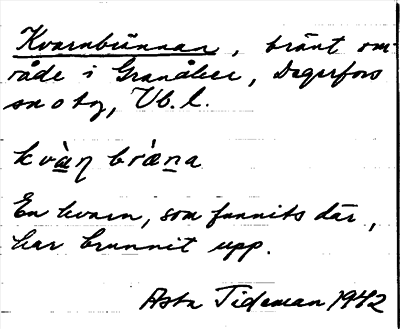 Kvarnbrännan, bränt om-
råde i Granåker, Degerfors
sn o tg, Vb. l.
kvàɳ brǽna
En kvarn, som funnits där,
har brunnit upp.
Asta Tideman 1942